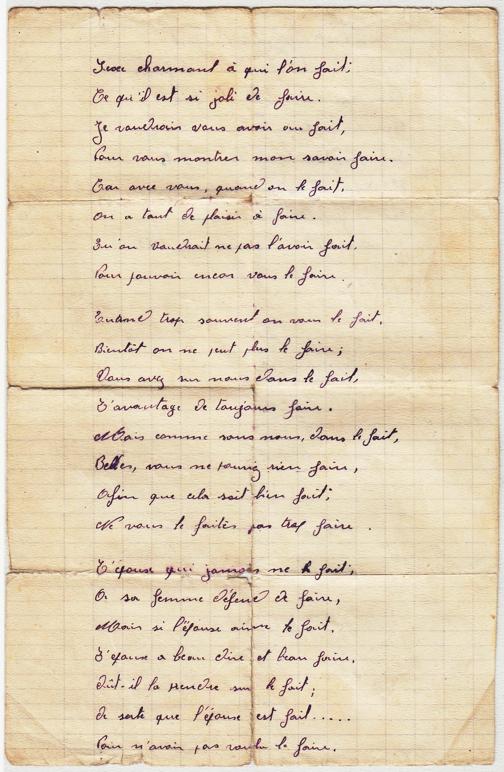 Sexe charmant à qui l'on fait,
Ce qu'il est si joli de faire.
Je voudrais vous avoir au fait,
Pour vous montrer mon savoir faire.
Car avec vous, quand on le fait,
On a tant de plaisir à faire.
Qu'on voudrait ne pas l'avoir fait,
Pour pouvoir encor vous le faire.
Quand trop souvent on vous le fait,
Bientôt on ne peut plus le faire;
Vous avez sur nous dans le fait,
L'avantage de toujours faire.
Mais comme sans nous, dans le fait,
Belles, vous ne pouviez rien faire,
Afin que cela soit bien fait;
Ne vous le faites pas trop faire.
L'époux qui jamais ne le fait,
A sa femme défend de faire,
Mais si l'épouse aime le fait.
L'époux a beau dire et beau faire.
Dût-il la prendre sur le fait;
de sorte que l'époux est fait.....
Pour n'avoir pas voulu le faire.